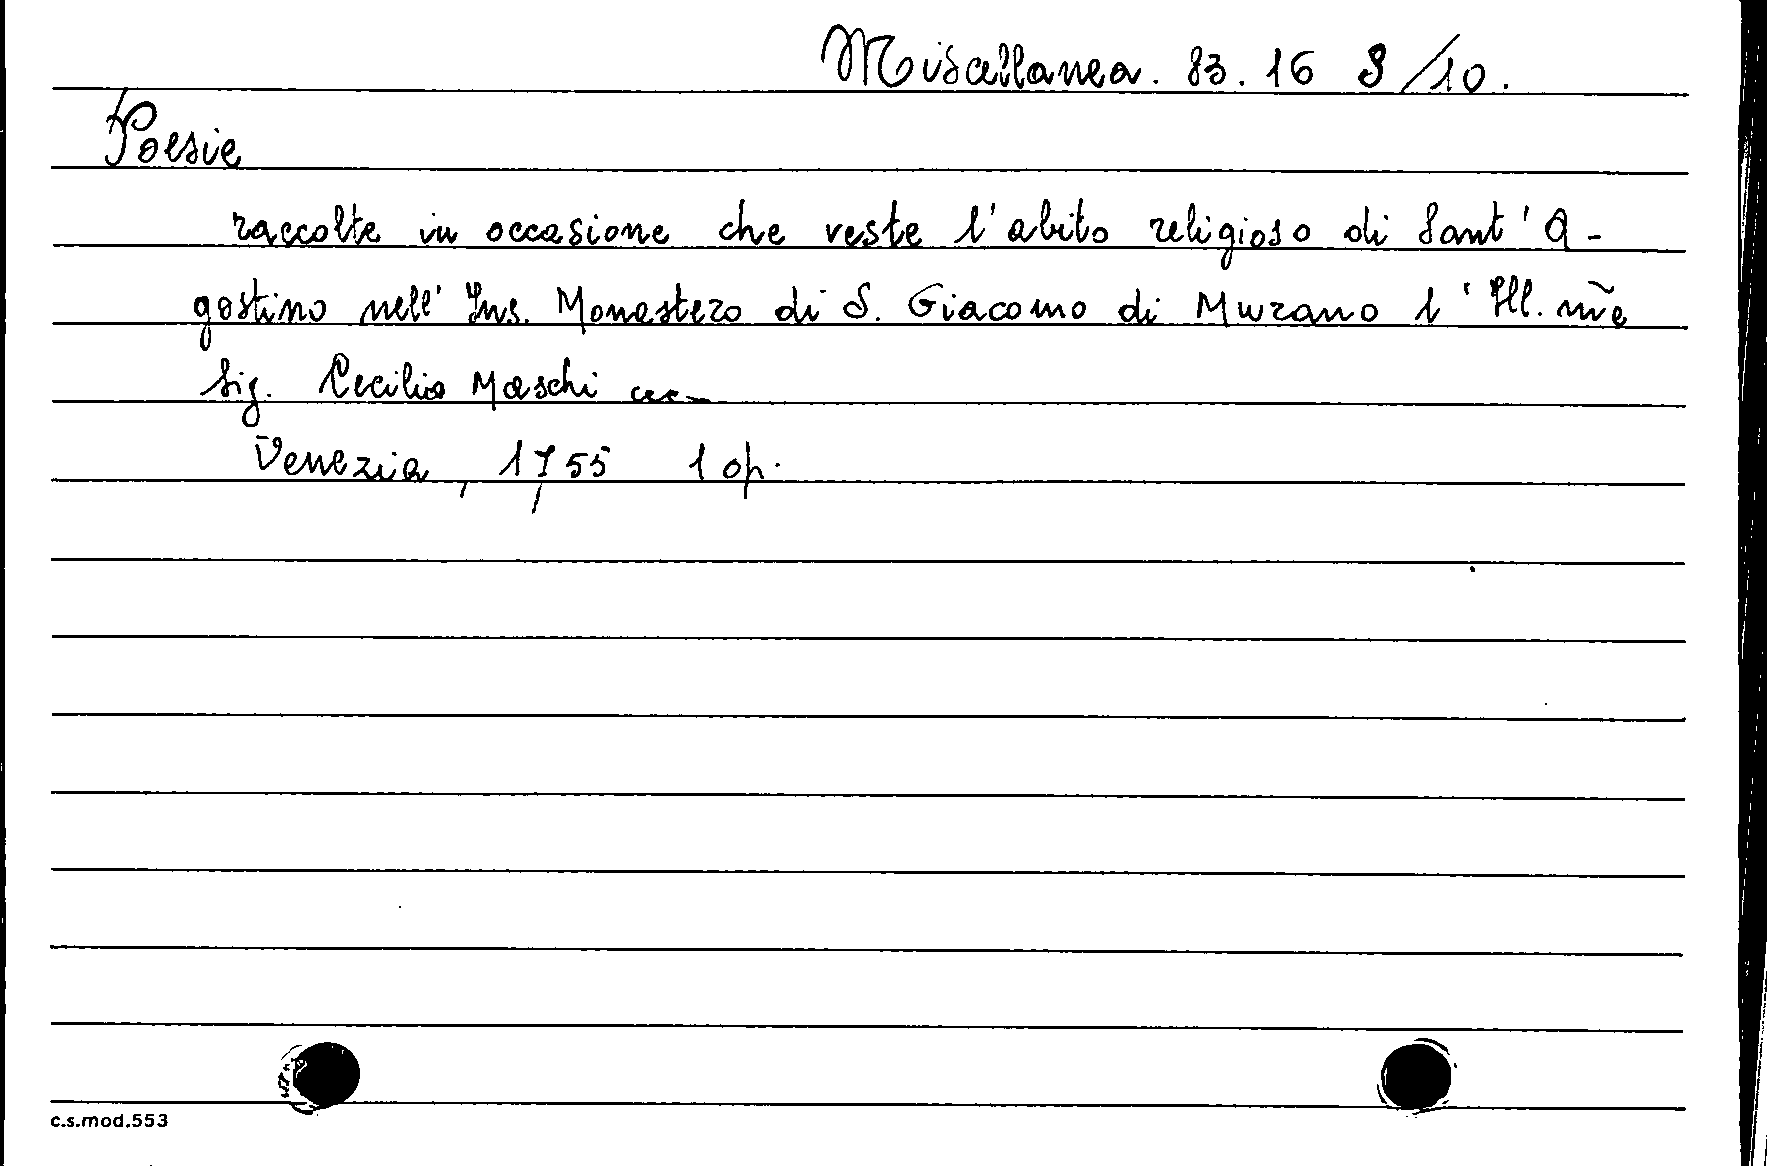 Miscellanea. 83. 16 8/10.
Poesie
raccolte in occasione che veste l'abito religioso di Sant'A-
gostino nell' Ins. Monastero di S. Giacomo di Murano l'Ill. m̃e
Sig. Cecilia Maschi ecc
Venezia, 1755 1 op.
c.s.mod.553